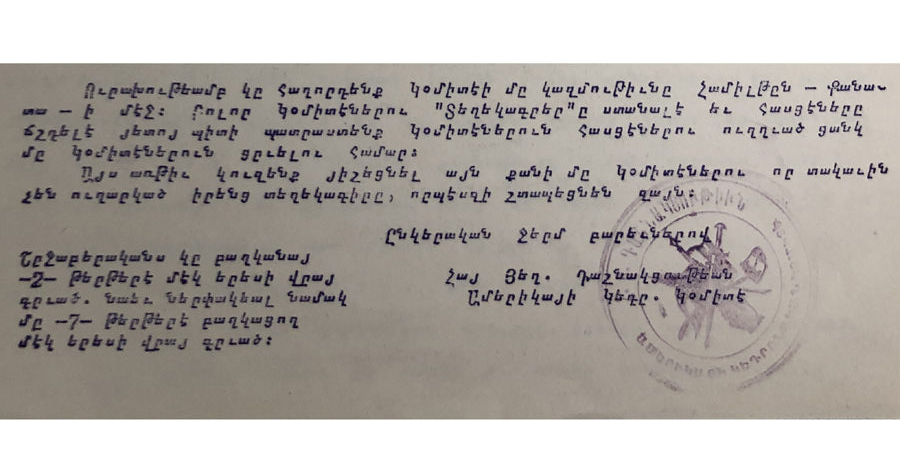 Ուրախութեամբ կը հաղորդենք կօմիտէի մը կազմութիւնը Համիլթըն — Քանա-
տա — ի մէջ: Բոլոր կօմիտէներու "Տեղեկագրեր"ը ստանալէ եւ հասցէները
ճշդելէ յետոյ պիտի պատրաստենք կօմիտէներուն հասցէներու ուղղուած ցանկ
մը կօմիտէներուն ցրւելու համար:
Այս առթիւ կուզենք յիշեցնել այն քանի մը կօմիտէներու որ տակաւին
չեն ուղարկած իրենց տեղեկագիրը, որպէսզի շտապեցնեն զայն:
Ընկերական ջերմ բարեւներով
Շրջաբերականս կը բաղկանայ
—2— թերթերէ մէկ երեսի վրայ Հայ Յեղ. Դաշնակցութեան
գրւած. նաեւ ներփակեալ նամակ Ամերիկայի Կեդր. Կօմիտէ
մը —7— թերթերէ բաղկացող
մէկ երեսի վրայ գրւած:
ԴԱՇՆԱԿՑՈՒԹԻՒՆ
ԱՄԵՐԻԿԱՅԻ ԿԵԴՐՈՆ